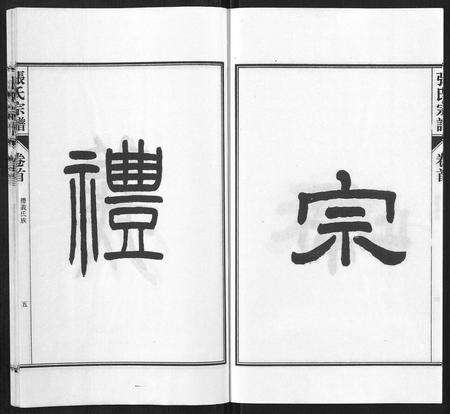 張氏宗譜
卷首
宗
禮
張氏宗譜
卷首
禮義氏族
五